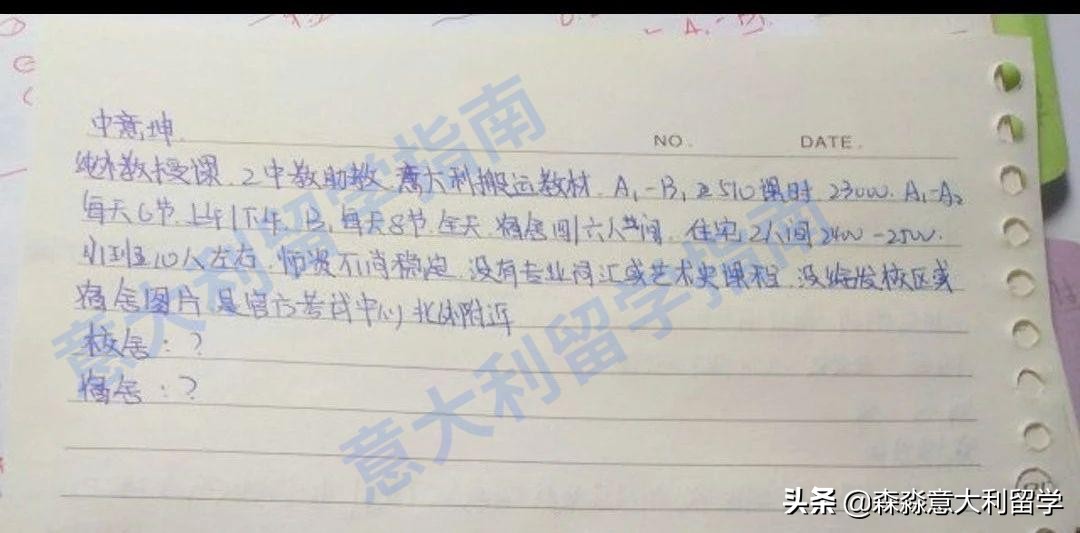 中意坤
NO.
DATE.
纯外教授课. 2中教助教. 意大利搬运教材. A1-B1 ≥510课时 23000. A1-A2
每天6节. 上午|下午. B1 每天8节. 全天. 宿舍四|六人间. 住宅. 2人间2400-2500.
小班至10人左右. 师资不肯稳定. 没有专业词汇或艺术史课程. 没给发校区或
宿舍图片. 是官方考试中心. 北附近
校舍：？
宿舍：？
意大利留学指南
意大利留学指南
头条 @森淼意大利留学